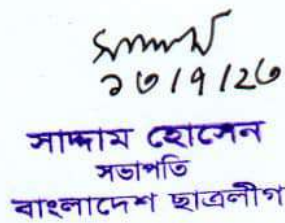 সাদ্দাম হোসেন
সভাপতি
বাংলাদেশ ছাত্রলীগ